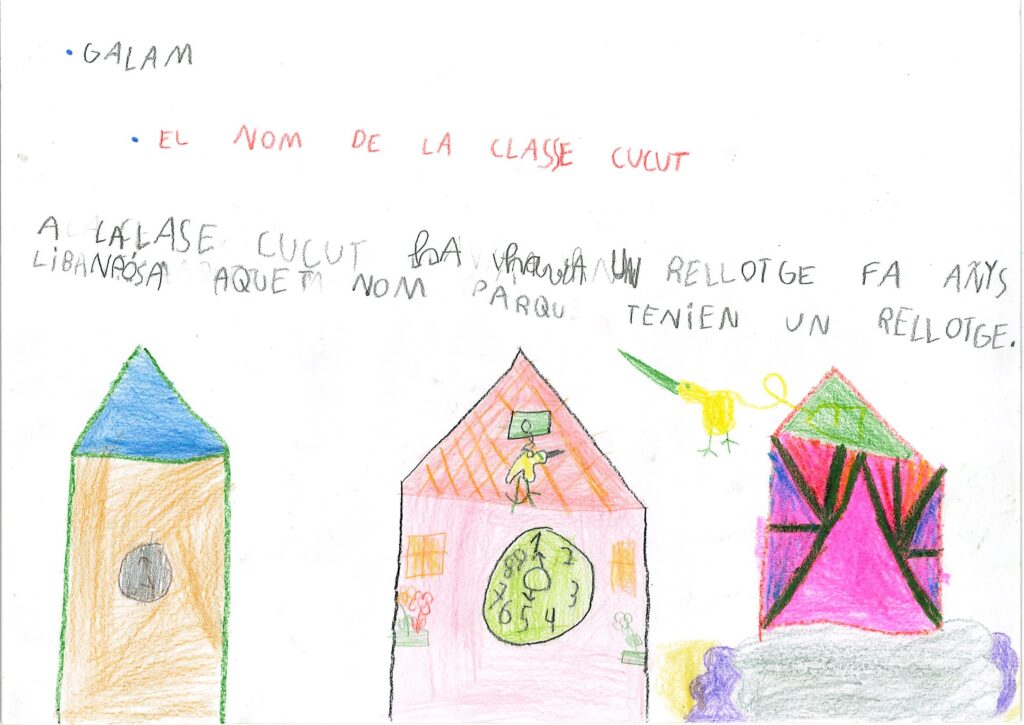 GALAM
EL NOM DE LA CLASSE CUCUT
A LA CLASE CUCUT HA HAVIA UN RELLOTGE FA AÑYS
LIBAN PÓSA AQUET NOM PARQU TENIEN UN RELLOTGE.
1 2
3
6 5 4